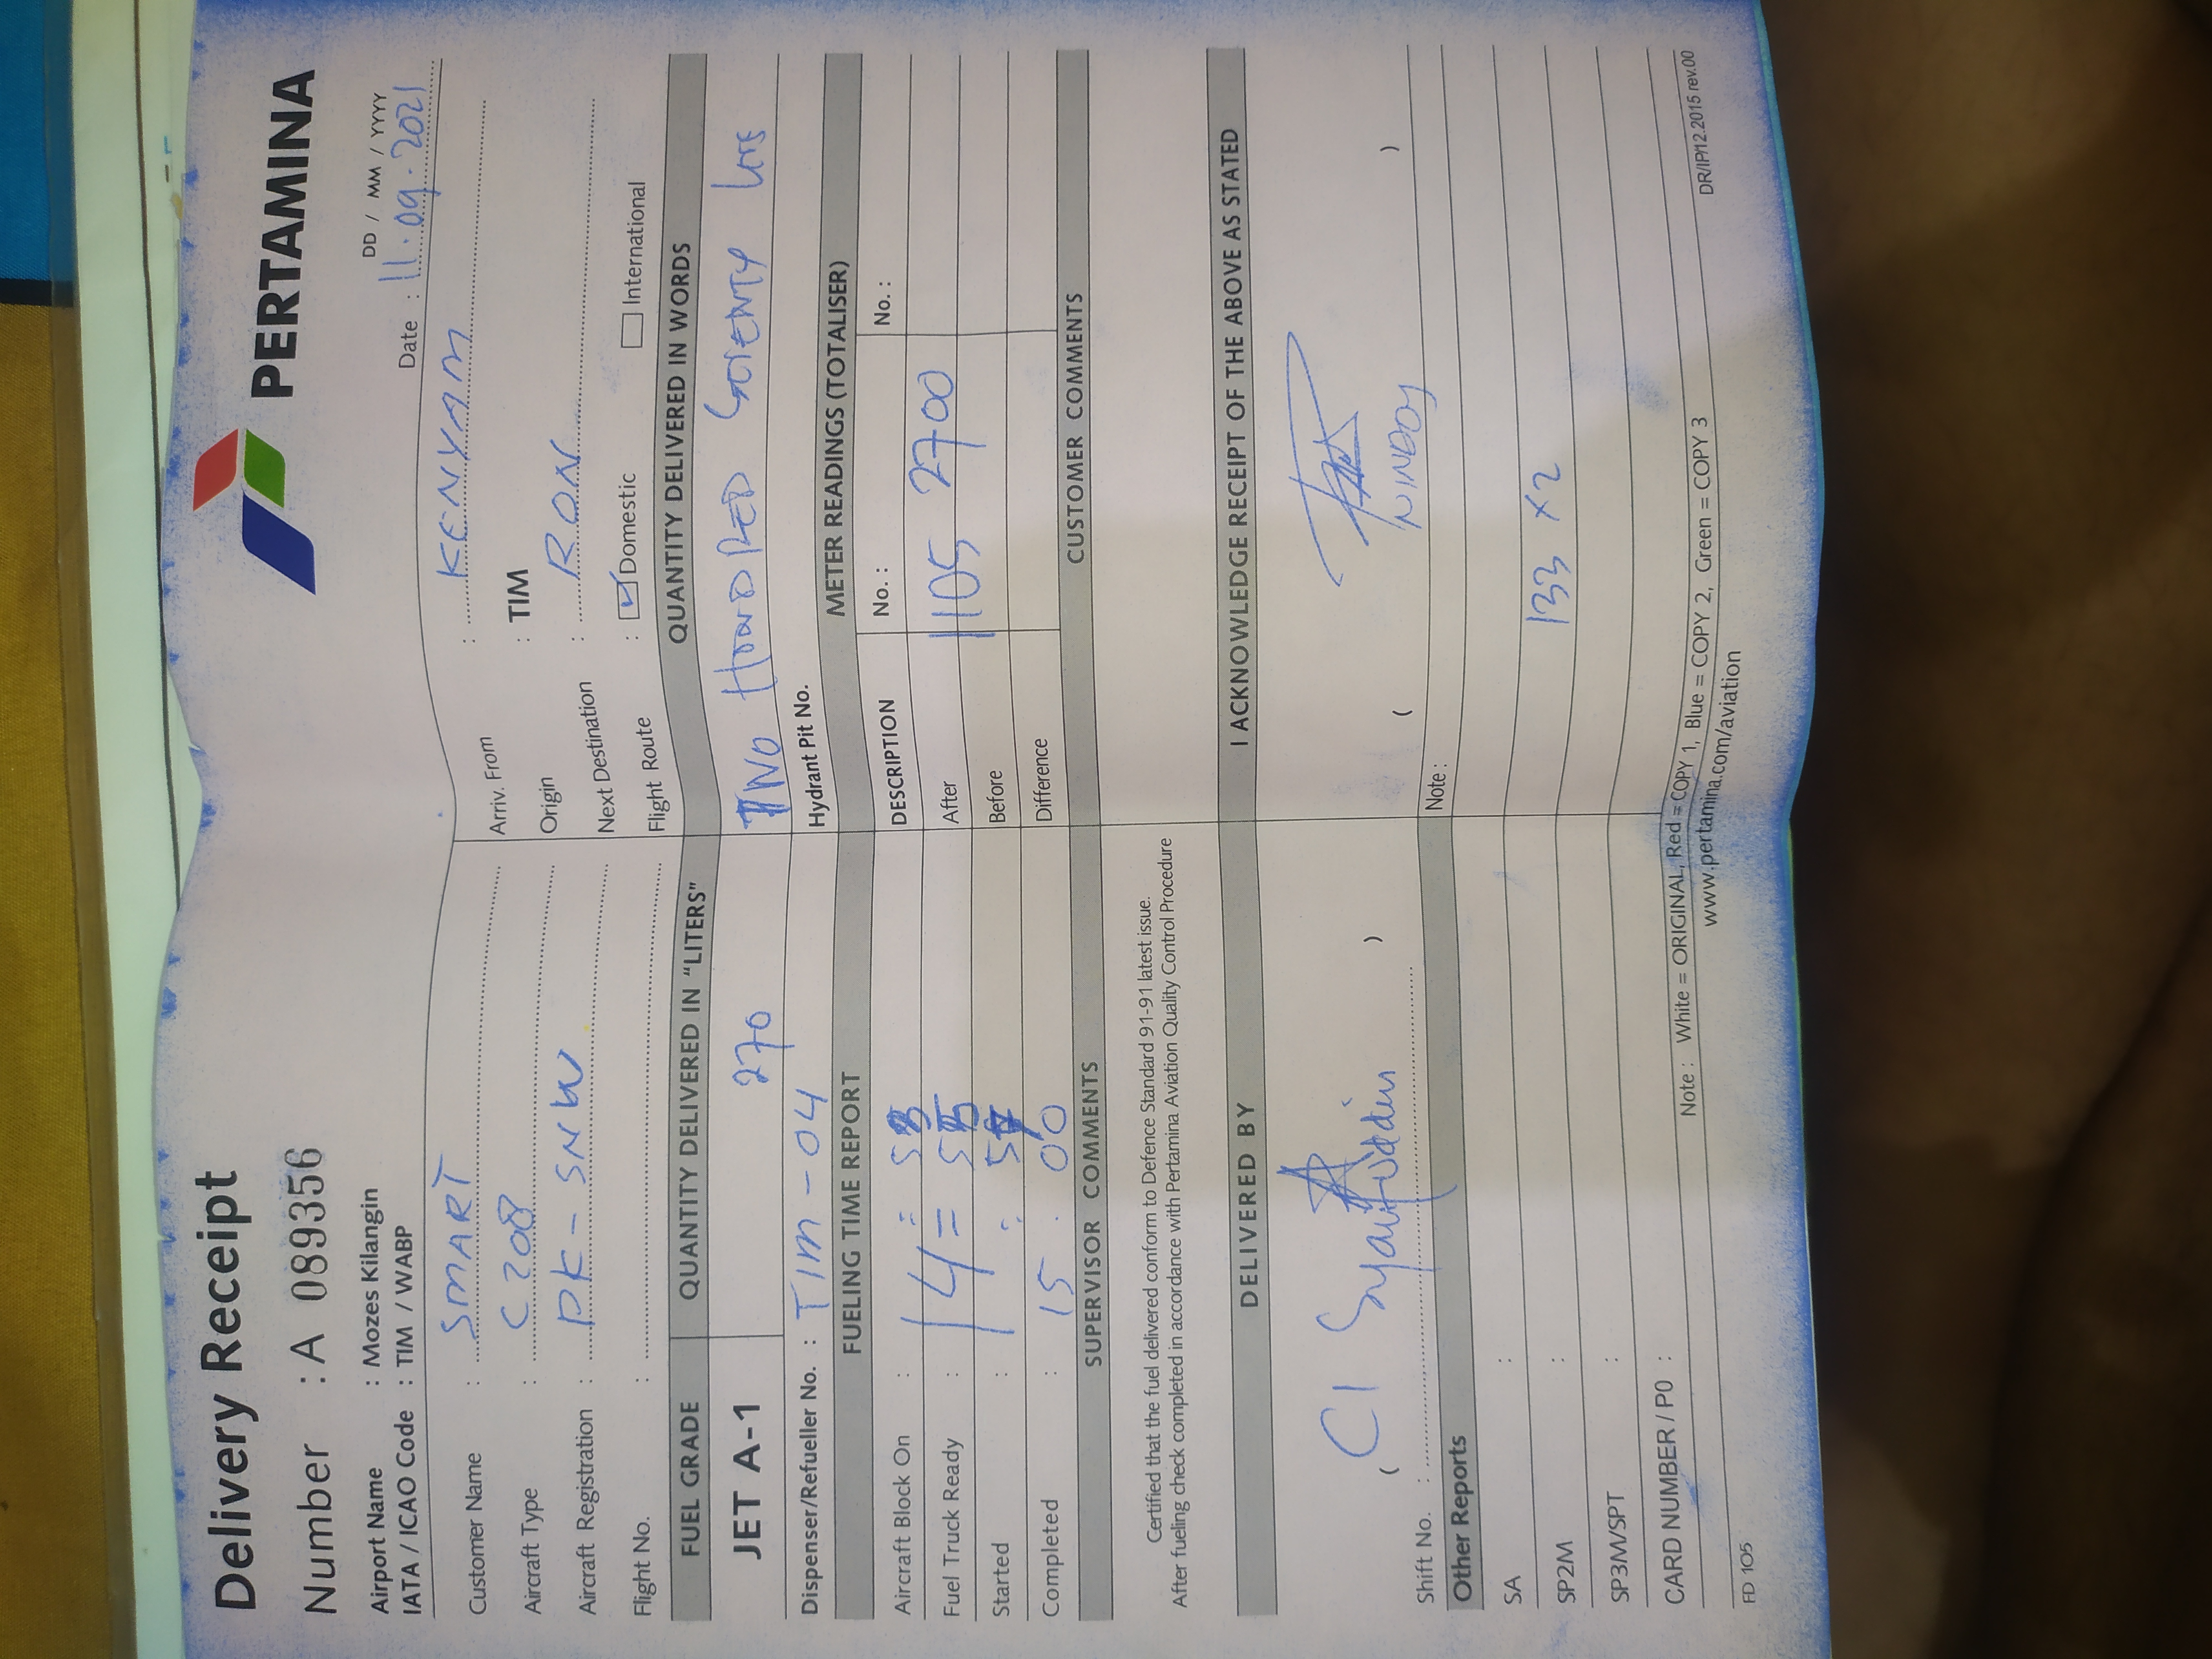 Delivery Receipt
PERTAMINA
Number : A 089356
DD / MM / YYYY
Airport Name : Mozes Kilangin
Date : 11.09.2021
IATA / ICAO Code : TIM / WABP
Customer Name : SMART
Arriv. From : KENYAM
Aircraft Type : C 208
Origin : TIM
Aircraft Registration : PK - SNW
Next Destination : RON
Flight No. :
Flight Route : Domestic International
FUEL GRADE QUANTITY DELIVERED IN "LITERS" QUANTITY DELIVERED IN WORDS
JET A-1 270 TWO HUNDRED SEVENTY
Dispenser/Refueller No. : TIM - 04 Hydrant Pit No.
FUELING TIME REPORT METER READINGS (TOTALISER)
Aircraft Block On : DESCRIPTION No. : No. :
Fuel Truck Ready : After 1105 2700
Started : Before
Completed : 15 . 00 Difference
SUPERVISOR COMMENTS CUSTOMER COMMENTS
Certified that the fuel delivered conform to Defence Standard 91-91 latest issue.
After fueling check completed in accordance with Pertamina Aviation Quality Control Procedure
DELIVERED BY I ACKNOWLEDGE RECEIPT OF THE ABOVE AS STATED
C1 Syaifuddin
( ) ( )
Shift No. :
Other Reports Note :
SA :
SP2M : 133 x 2
SP3M/SPT :
CARD NUMBER / PO :
Note : White = ORIGINAL, Red = COPY 1, Blue = COPY 2, Green = COPY 3
FD 105 www.pertamina.com/aviation DR/IP/12.2015 rev.00